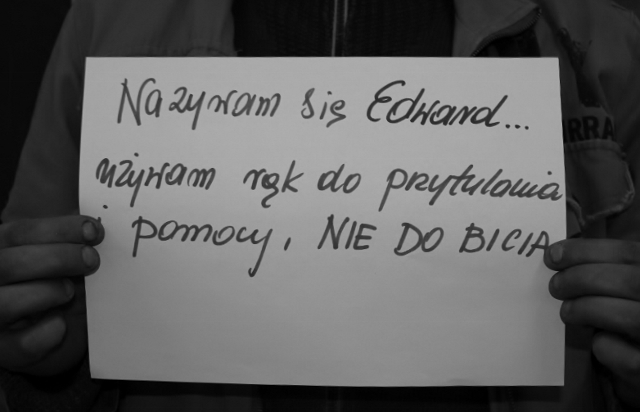 Nazywam się Edward...
używam rąk do przytulania
i pomocy, NIE DO BICIA
RRA